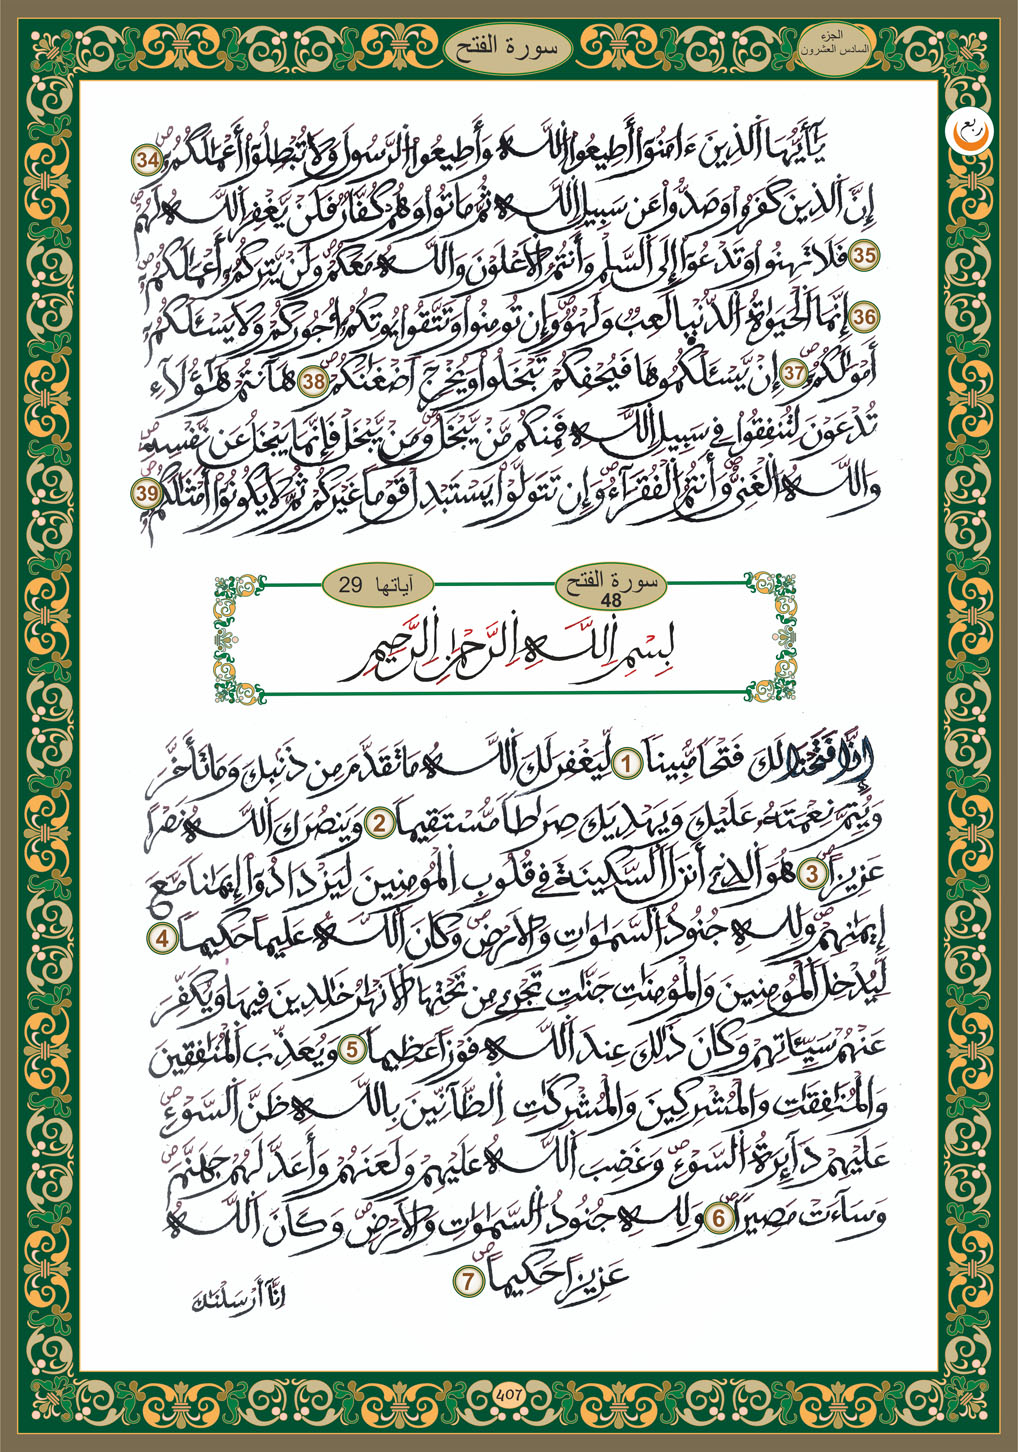 سورة الفتح
الجزء
السادس العشرون
ربع
يَٰٓأَيُّهَا اَلذِينَ ءَامَنُوٓاْ أَطِيعُواْ اُللَّهَ وَأَطِيعُواْ اُلرَّسُولَ وَلَا تُبْطِلُوٓاْ أَعْمَٰلَكُمُۥٓ 34
إِنَّ اَلذِينَ كَفَرُواْ وَصَدُّواْ عَن سَبِيلِ اِللَّهِ ثُمَّ مَاتُواْ وَهُمْ كُفَّارٌ فَلَنْ يَّغْفِرَ اَللَّهُ لَهُمْ
35 فَلَا تَهِنُواْ وَتَدْعُوٓاْ إِلَى اَلسَّلْمِ وَأَنتُمُ اُلَاعْلَوْنَ وَاللَّهُ مَعَكُمْ وَلَنْ يَّتِرَكُمُۥٓ أَعْمَٰلَكُمُۥٓ
36 إِنَّمَا اَلْحَيَوٰةُ اُلدُّنْيَا لَعِبٌ وَلَهْوٌ وَإِن تُومِنُواْ وَتَتَّقُواْ يُوتِكُمُۥٓ أُجُورَكُمْ وَلَا يَسْـَٔلْكُمُۥٓ
أَمْوَٰلَكُمُۥٓ 37 إِنْ يَّسْـَٔلْكُمُوهَا فَيُحْفِكُمْ تَبْخَلُواْ وَيُخْرِجَ اَضْغَٰنَكُمْ 38 هَآنتُمْ هَٰٓؤُلَآءِ
تُدْعَوْنَ لِتُنفِقُواْ فِي سَبِيلِ اِللَّهِ فَمِنكُم مَّنْ يَّبْخَلُ وَمَنْ يَّبْخَلْ فَإِنَّمَا يَبْخَلُ عَن نَّفْسِهِۦ
وَاللَّهُ اُلْغَنِيُّ وَأَنتُمُ اُلْفُقَرَآءُ وَإِن تَتَوَلَّوْاْ يَسْتَبْدِلْ قَوْماً غَيْرَكُمْ ثُمَّ لَا يَكُونُوٓاْ أَمْثَٰلَكُمْ 39
سورة الفتح
48
آياتها 29
بِسْمِ اِللَّهِ اِلرَّحْمَٰنِ اِلرَّحِيمِ
إِنَّا فَتَحْنَا لَكَ فَتْحاً مُّبِيناً 1 لِّيَغْفِرَ لَكَ اَللَّهُ مَا تَقَدَّمَ مِن ذَنۢبِكَ وَمَا تَأَخَّرَ
وَيُتِمَّ نِعْمَتَهُۥ عَلَيْكَ وَيَهْدِيَكَ صِرَٰطاً مُّسْتَقِيماً 2 وَيَنصُرَكَ اَللَّهُ نَصْراً
عَزِيزاً 3 هُوَ اَلذِےٓ أَنزَلَ اَلسَّكِينَةَ فِي قُلُوبِ اِلْمُومِنِينَ لِيَزْدَادُوٓاْ إِيمَٰناً مَّعَ
إِيمَٰنِهِمْ وَلِلهِ جُنُودُ اُلسَّمَٰوَٰتِ وَالَارْضِ وَكَانَ اَللَّهُ عَلِيماً حَكِيماً 4
لِّيُدْخِلَ اَلْمُومِنِينَ وَالْمُومِنَٰتِ جَنَّٰتٍ تَجْرِے مِن تَحْتِهَا اَلَانْهَٰرُ خَٰلِدِينَ فِيهَا وَيُكَفِّرَ
عَنْهُمْ سَيِّـَٔاتِهِمْ وَكَانَ ذَٰلِكَ عِندَ اَللَّهِ فَوْزاً عَظِيماً 5 وَيُعَذِّبَ اَلْمُنَٰفِقِينَ
وَالْمُنَٰفِقَٰتِ وَالْمُشْرِكِينَ وَالْمُشْرِكَٰتِ اِلظَّآنِّينَ بِاللَّهِ ظَنَّ اَلسَّوْءِ
عَلَيْهِمْ دَآئِرَةُ اُلسَّوْءِ وَغَضِبَ اَللَّهُ عَلَيْهِمْ وَلَعَنَهُمْ وَأَعَدَّ لَهُمْ جَهَنَّمَ
وَسَآءَتْ مَصِيراً 6 وَلِلهِ جُنُودُ اُلسَّمَٰوَٰتِ وَالَارْضِ وَكَانَ اَللَّهُ
عَزِيزاً حَكِيماً 7
اِنَّآ أَرْسَلْنَٰكَ
407